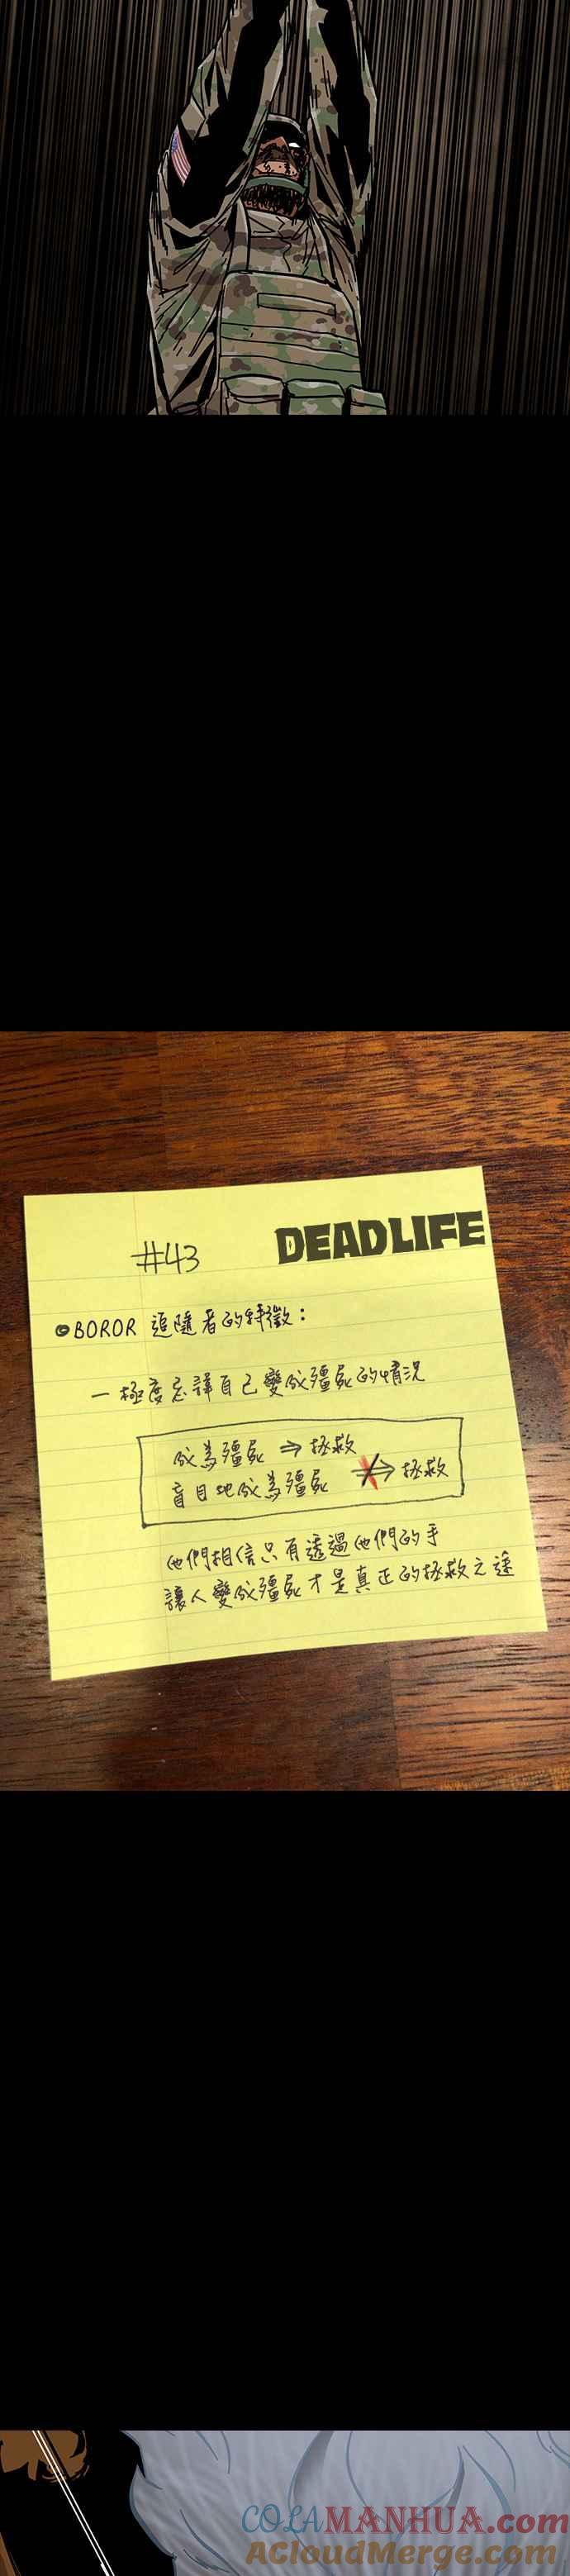 #43
DEAD LIFE
BOROR 追隨者的特徵：
— 極度忌諱自己變成殭屍的情況
成為殭屍 ⇒ 拯救
盲目地成為殭屍 ⇏ 拯救
他們相信只有透過他們的手
讓人變成殭屍才是真正的拯救之途
COLAMANHUA.com
ACloudMerge.com